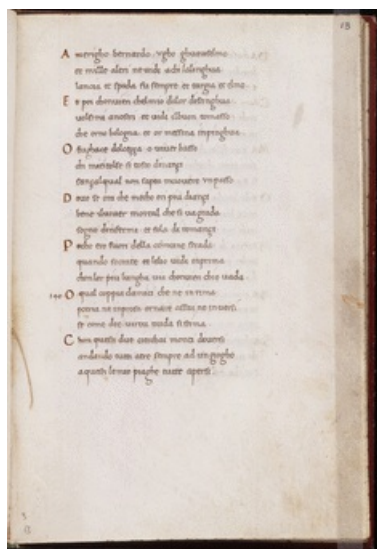 A merigho bernardo, vgho ghuauselmo
et mille altri ne uidi adri lalinghua
lancia et spada fu sempre et targia et elmo
E t poi chonuien chelmio dolor destinghua
uolsimi anostri et uidi ilbuon tomasso
che orno bologna et or messina impinghua
O fughace dolcezza o uiuer lasso
chi mititolse si tosto dinanzi
senzalqual non sapea muouere vn passo
D oue se ora che mecho eri pur dianzi
bene iluiuer mortal che si nagrada
sogno dinfermi et fola di romanzi
P ocho ero fuori della comune strada
quando socrate et lelio uidi inprima
chonlor piu lungha uia chonuien chio uada
O qual coppia damici che ne in rima
poria ne inprosa ornare assai ne in uersi
se come dee uirtu nuda si stima
C hon questi due cerchai monti diuersi
andando tutti atre sempre ad un giogho
a questi le mie piaghe tutte apersi